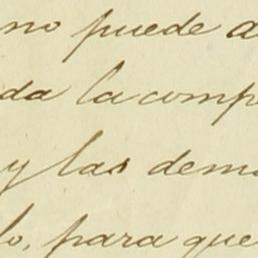 no puede a
da la comp
y las dem
lo, para que